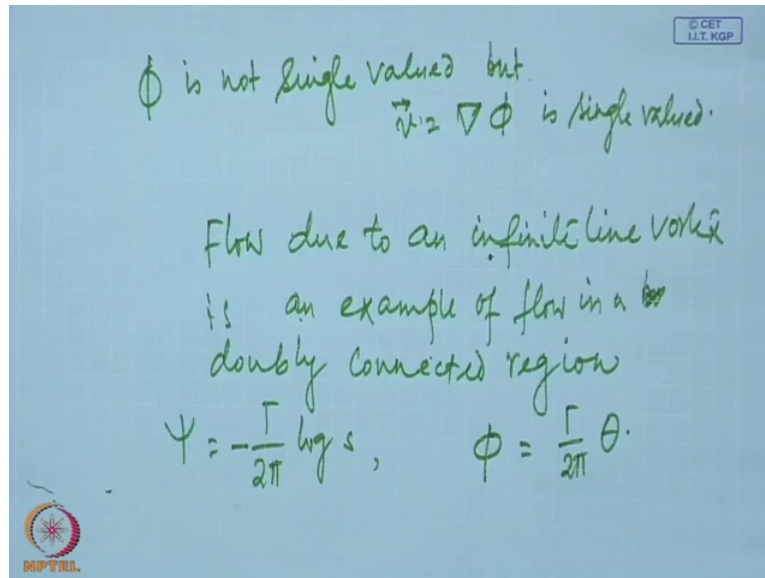 © CET
I.I.T. KGP
ϕ is not single valued but
v⃗ = ∇ϕ is single valued.
Flow due to an infinite line vortex
is an example of flow in a
doubly connected region
Ψ = -Γ/2π log s, ϕ = Γ/2π θ.
NPTEL